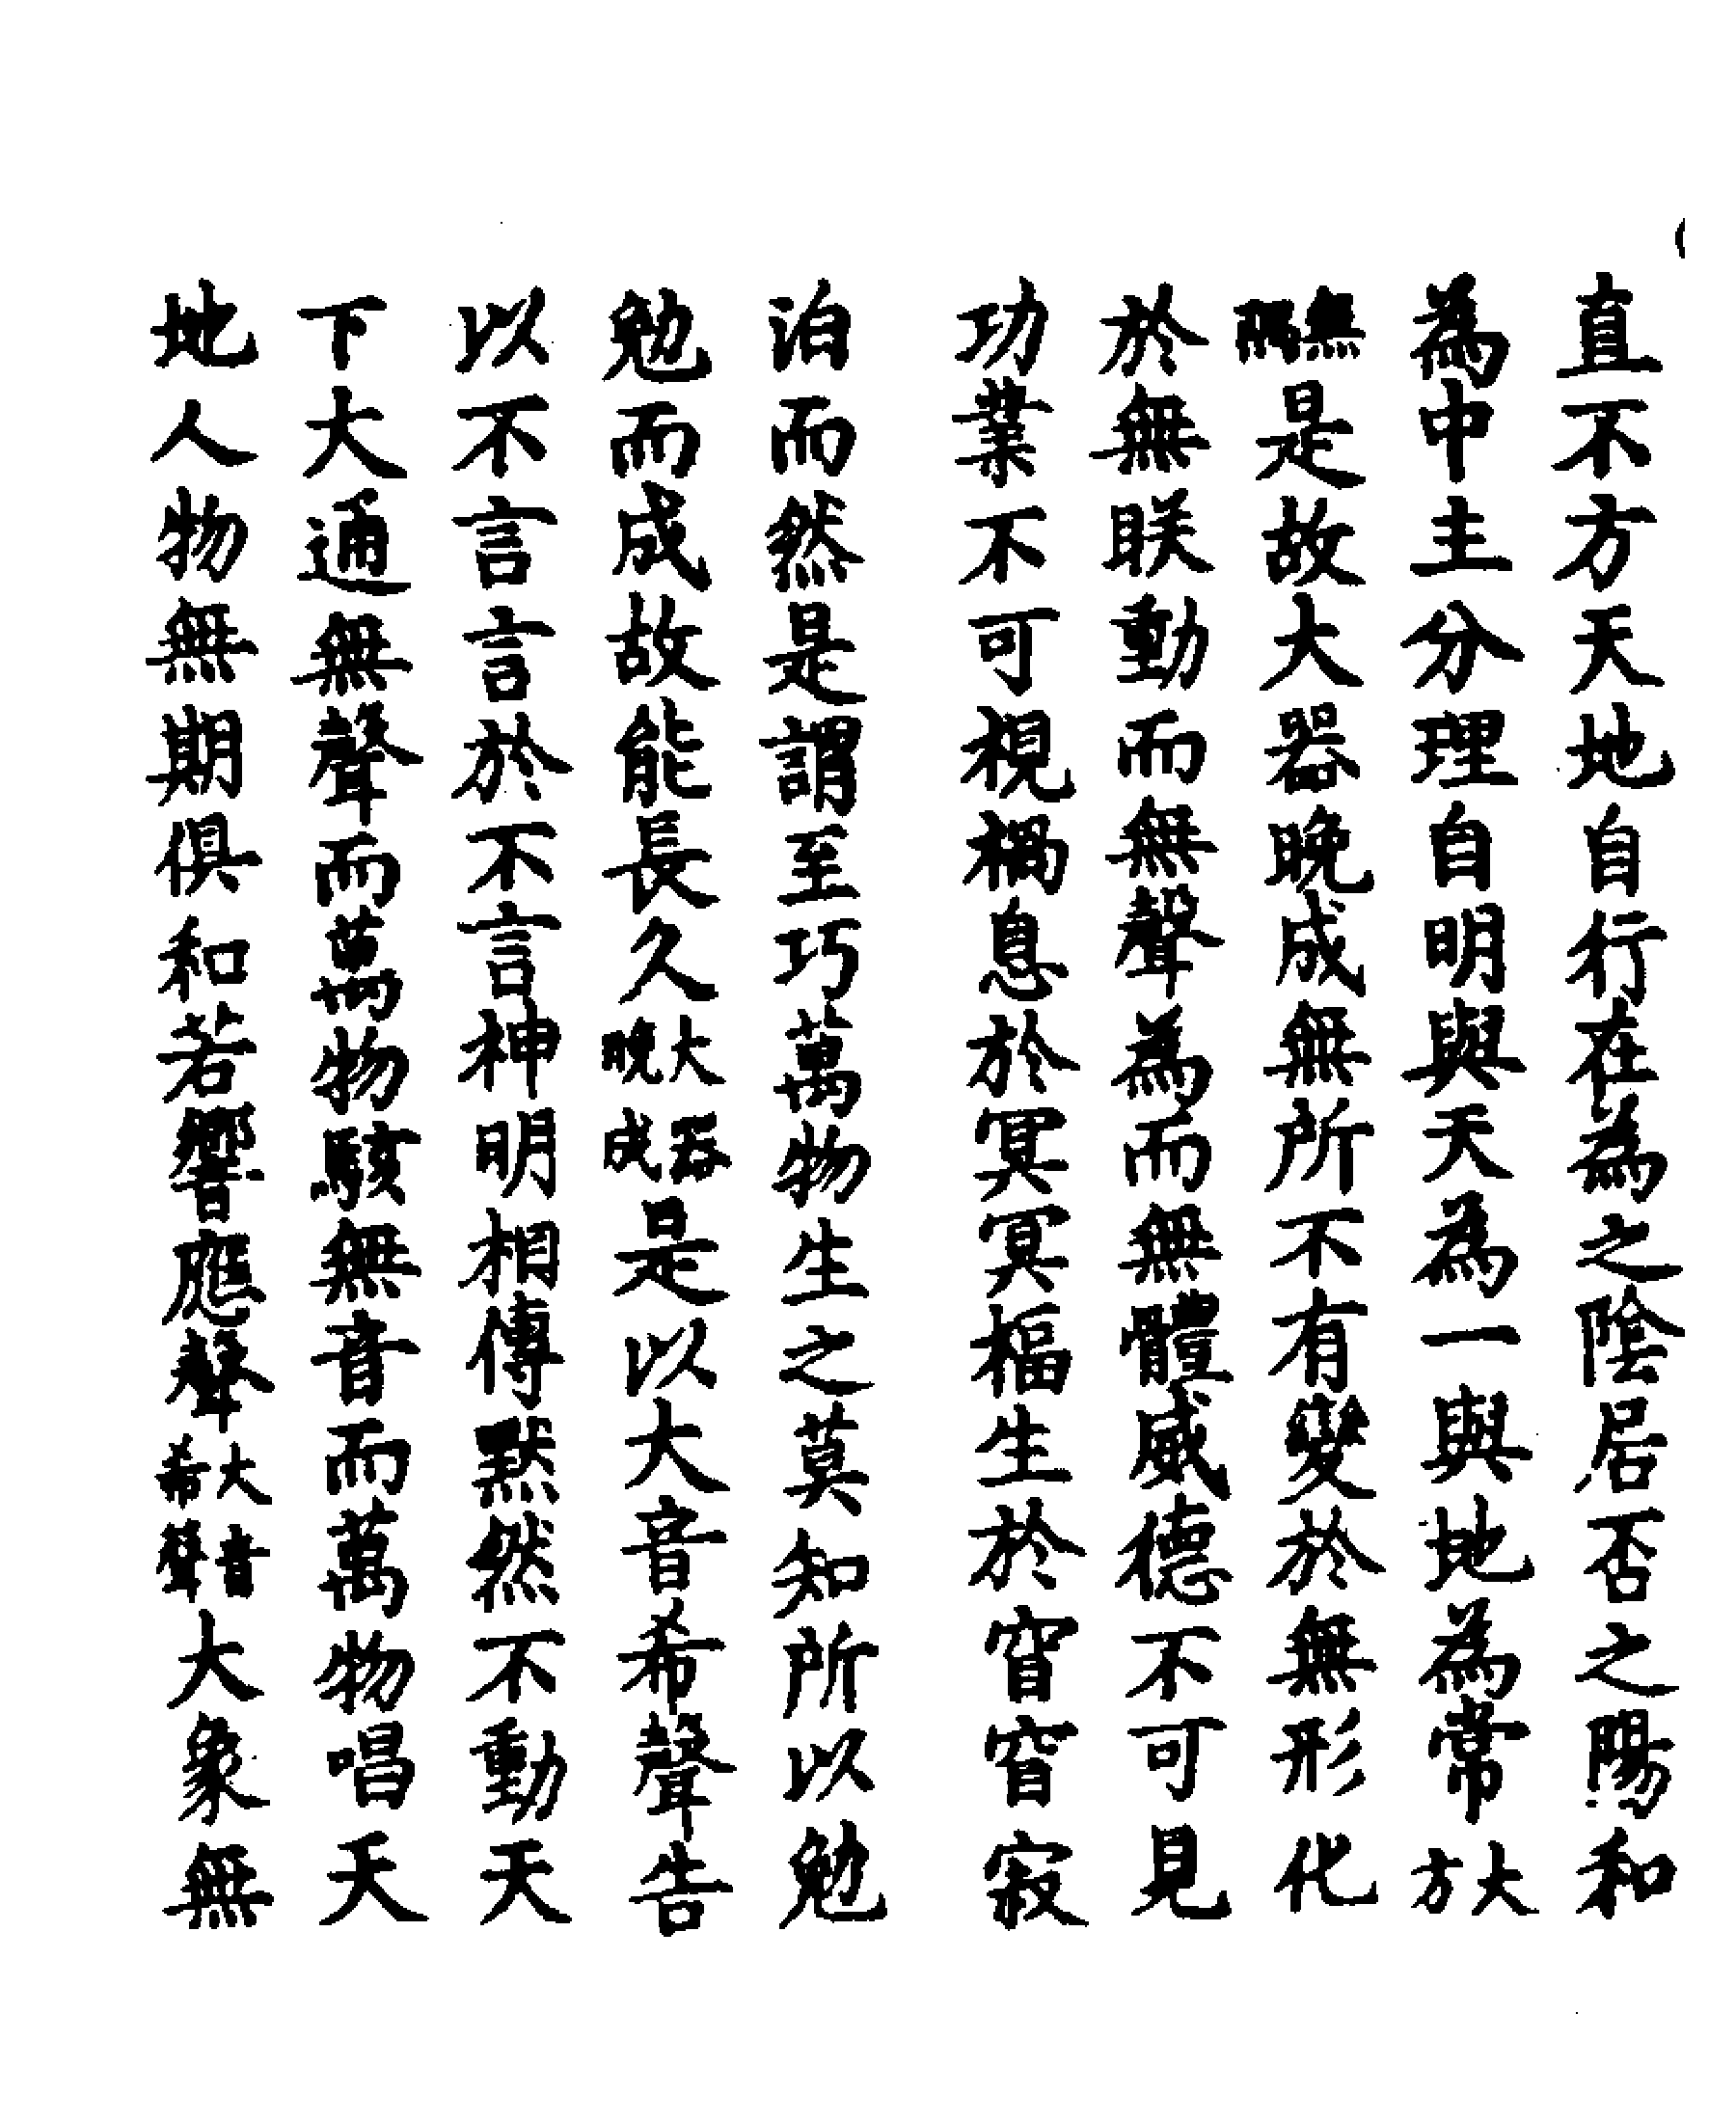 直不方天地自行在為之陰居否之陽和
為中主分理自明與天為一與地為常大方
無隅是故大器晚成無所不有變於無形化
於無朕動而無聲為而無體威德不可見
功業不可視禍息於冥冥福生於窅窅寂
泊而然是謂至巧萬物生之莫知所以勉
勉而成故能長久大器晚成是以大音希聲告
以不言言於不言神明相傳默然不動天
下大通無聲而萬物駭無音而萬物唱天
地人物無期俱和若響應聲大音希聲大象無